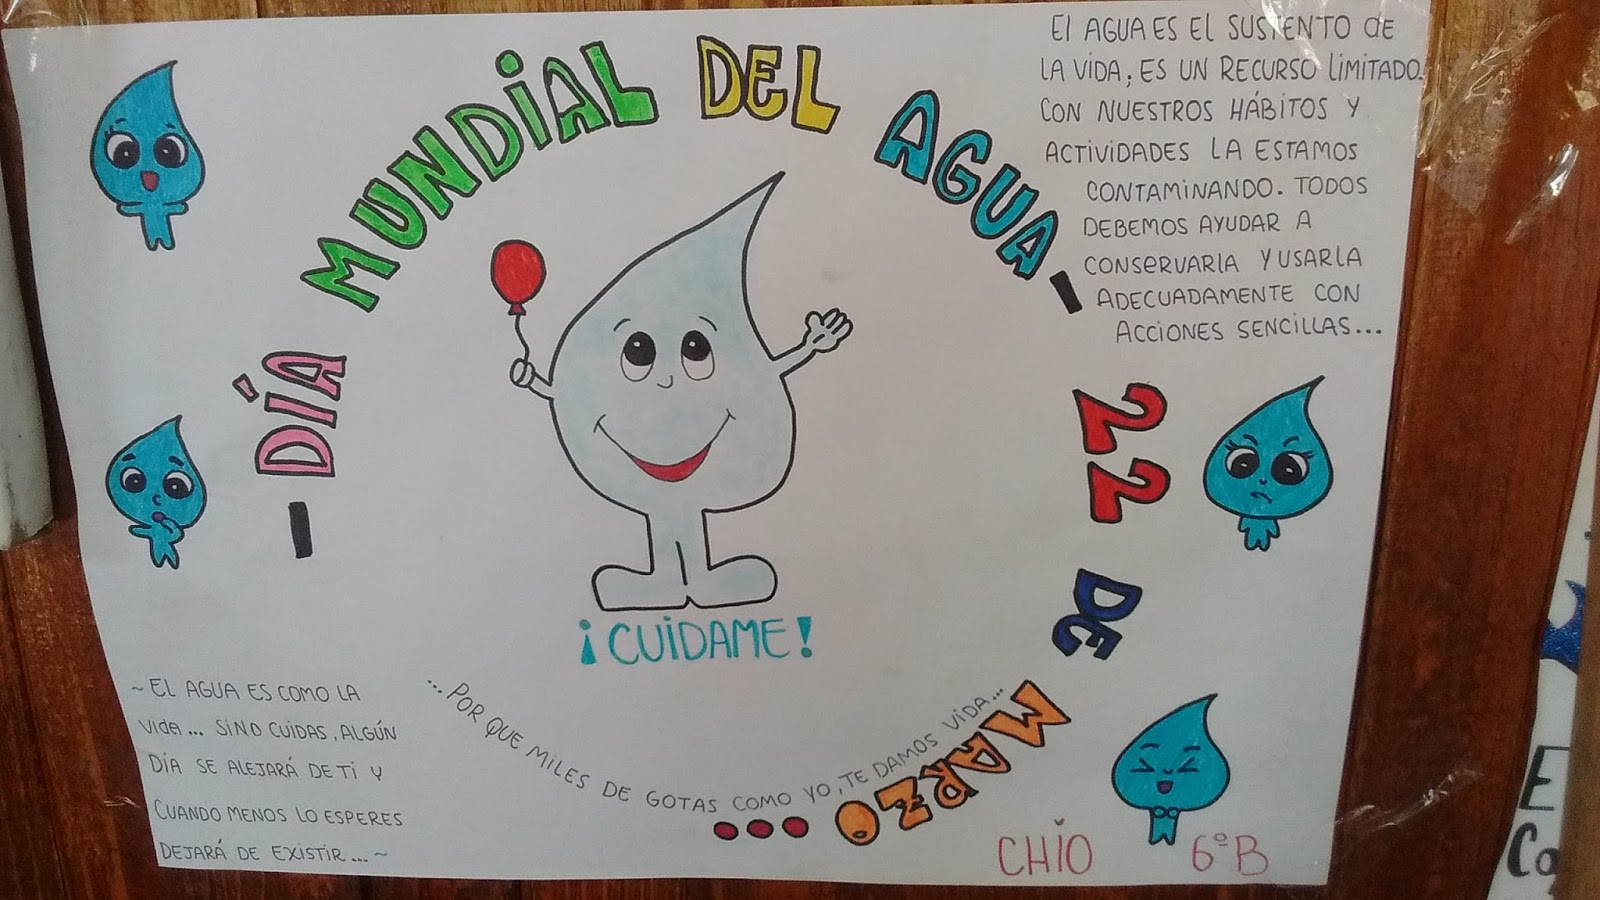 - DÍA MUNDIAL DEL AGUA -
22 DE MARZO...
El AGUA ES El SUSTENTO de
LA VIDA; ES UN RECURSO limitADO.
CON NUESTROS HÁBITOS Y
ACTIVIDADES LA ESTAMOS
CONTAMINANDO. TODOS
DEBEMOS AYUDAR A
CONSERVARlA Y USARLA
ADECUADAMENTE CON
ACCIONES SENCILLAS...
¡CUIDAME!
...POR QUE MILES DE GOTAS COMO YO, TE DAMOS VIDA...
~ EL AGUA ES COMO LA
vida... SINO CUIDAS, ALGÚN
DÍA SE ALEJARÁ DE TI Y
CUANDO MENOS LO ESPERES
DEJARÁ DE EXISTIR... ~
CHIO 6ºB
E
Co